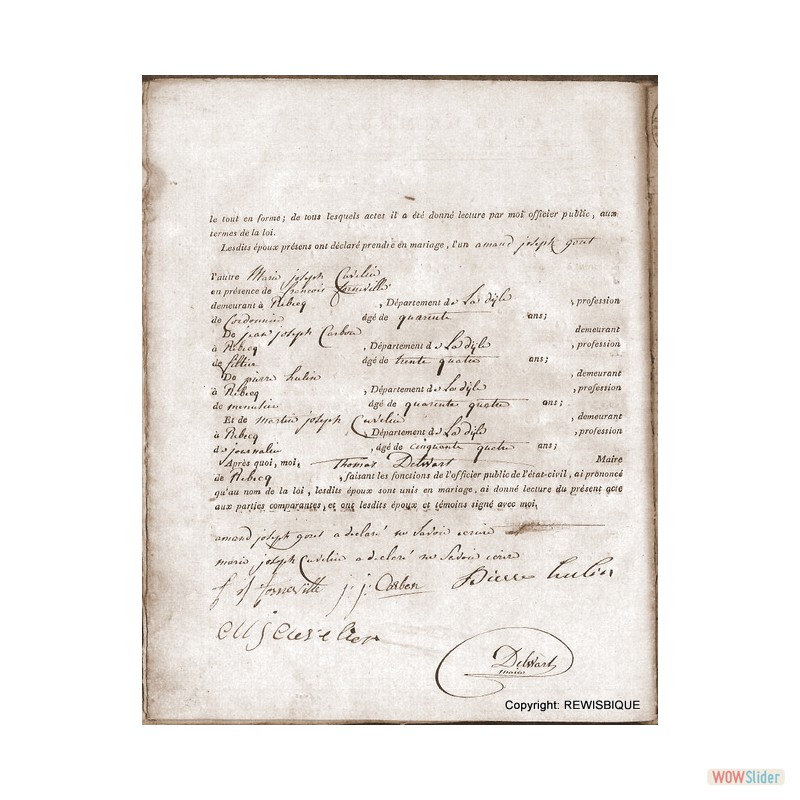 le tout en forme; de tous lesquels actes il a été donné lecture par moi officier public, aux
termes de la loi.
Lesdits époux présens ont déclaré prendre en mariage, l'un amand joseph gout
l'autre Marie joseph Cuvelier
en présence de francois
demeurant à Rebecq , Département de La dyle , profession
de Cordonnier âgé de quarente ans;
De jean joseph Carbon demeurant
à Rebecq , Département de La dyle , profession
de âgé de trente quatre ans;
De pierre hulin , demeurant
à Rebecq , Département de La dyle , profession
de menuisier âgé de quarente quatre ans;
Et de Martin joseph Cuvelier , demeurant
à Rebecq , Département de La dyle , profession
de journalier , âgé de cinquante quatre ans;
Après quoi, moi, Thomas Delwart Maire
de Rebecq , faisant les fonctions de l'officier public de l'état-civil, ai prononcé
qu'au nom de la loi, lesdits époux sont unis en mariage, ai donné lecture du présent acte
aux parties comparantes, et ont lesdits époux et témoins signé avec moi,
amand joseph gout a declaré ne Savoir ecrire
marie joseph Cuvelier a declaré ne Savoir ecrire
j: j: Carbon Pierre hulin
Delwart
maire
Copyright: REWISBIQUE
WOWSlider